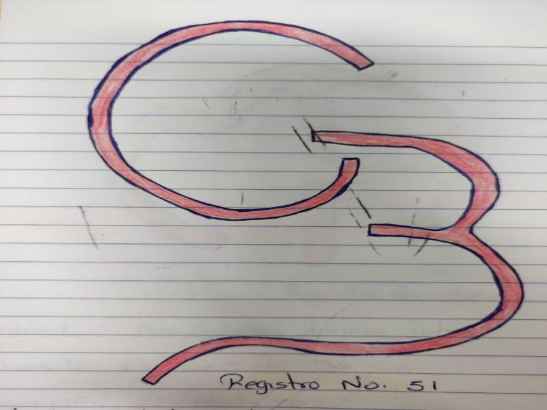 CB
Registro No. 51